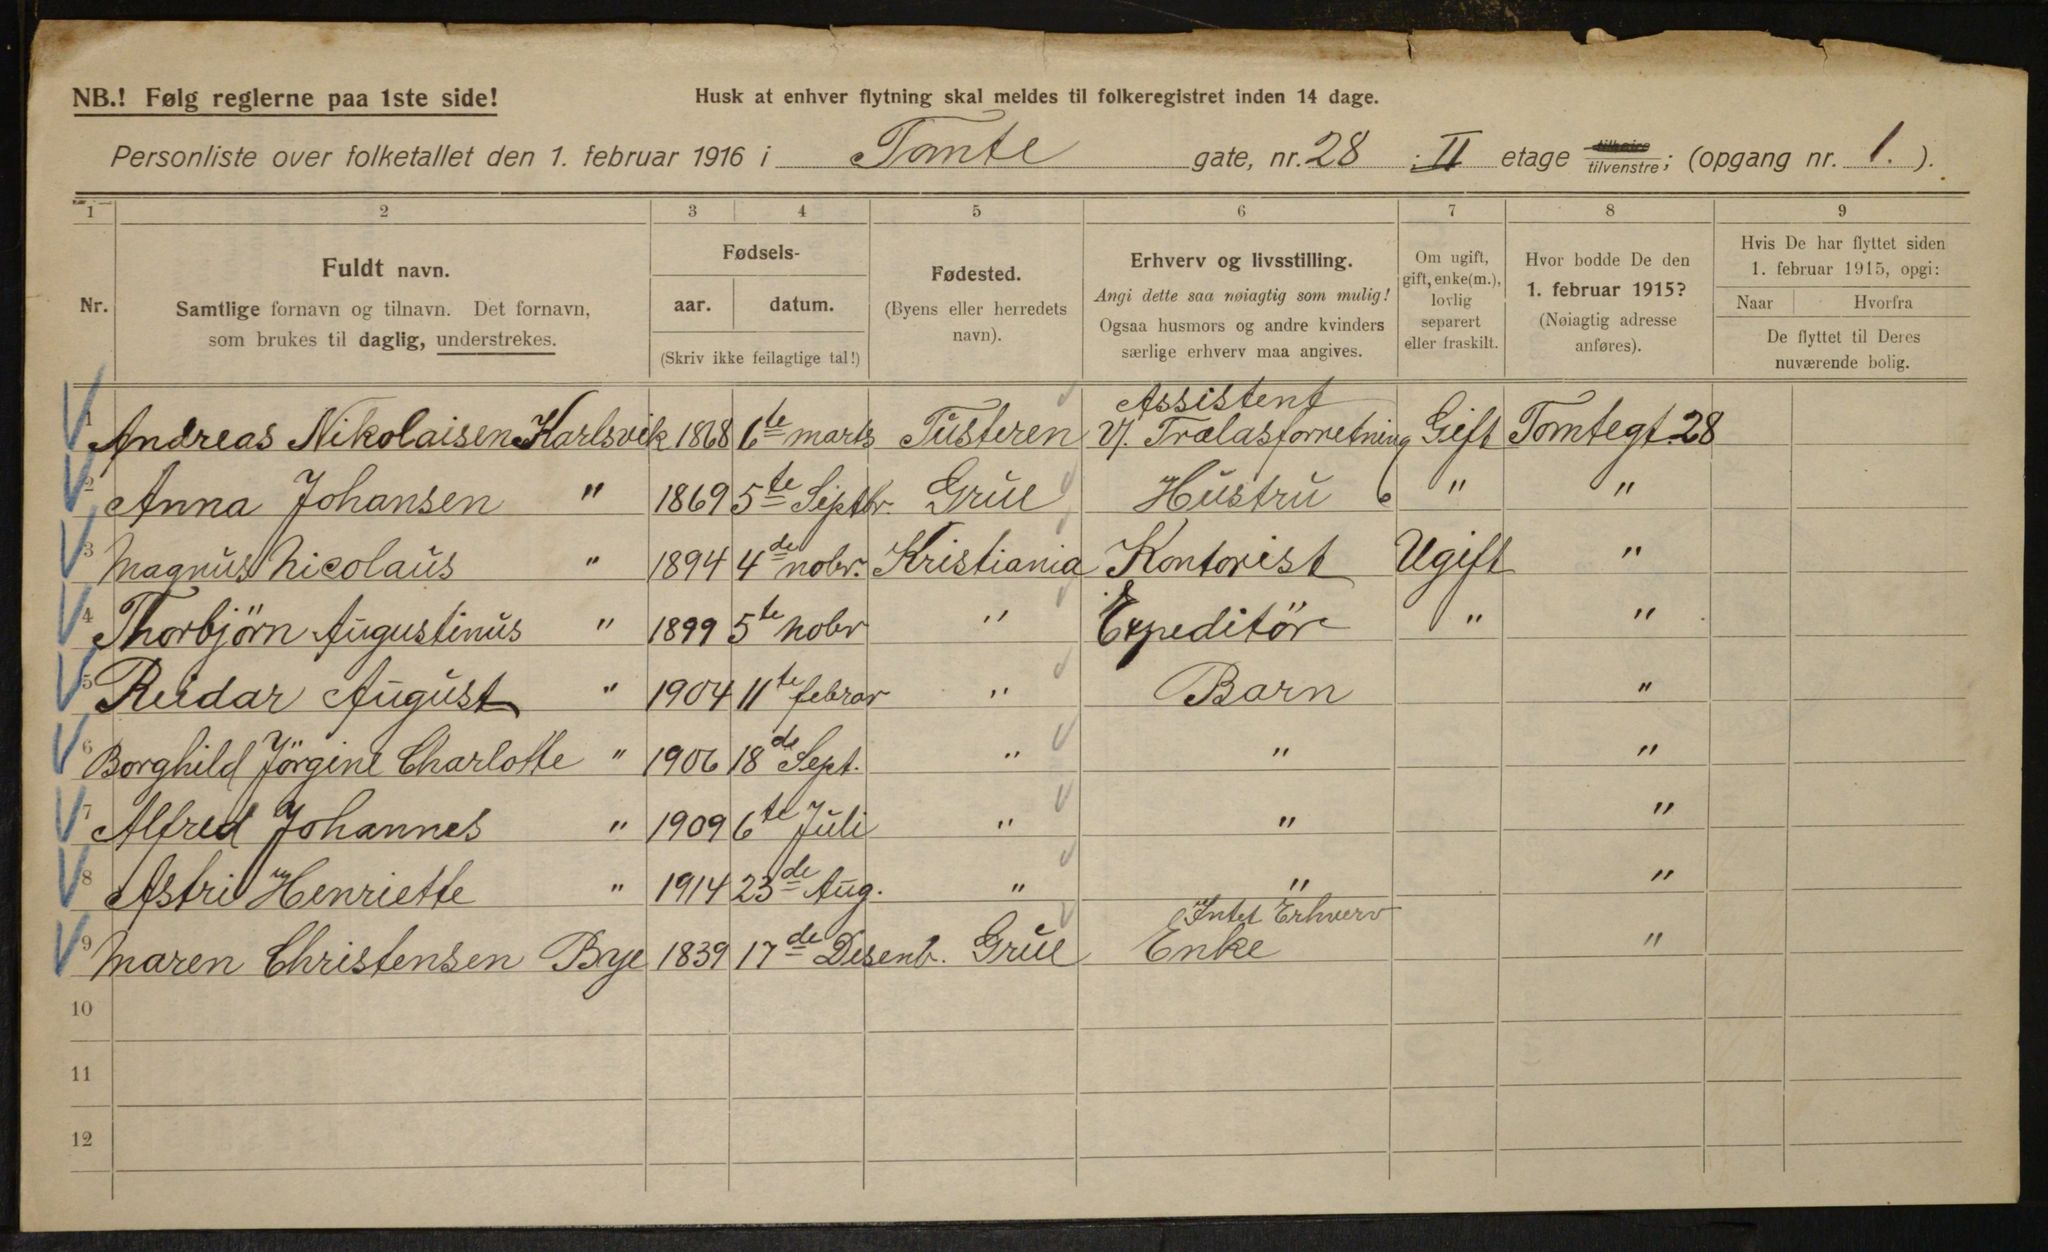 NB.! Følg reglerne paa 1ste side!
Husk at enhver flytning skal meldes til folkeregistret inden 14 dage.
Personliste over folketallet den 1. februar 1916 i Tomte gate, nr. 28 II etage tilhøire/tilvenstre; (opgang nr. 1.).
1 2 3 4 5 6 7 8 9
Nr.
Fuldt navn.
Samtlige fornavn og tilnavn. Det fornavn,
som brukes til daglig, understrekes.
Fødsels-
aar. datum.
(Skriv ikke feilagtige tal!)
Fødested.
(Byens eller herredets
navn).
Erhverv og livsstilling.
Angi dette saa nøiagtig som mulig!
Ogsaa husmors og andre kvinders
særlige erhverv maa angives.
Om ugift,
gift, enke(m.),
lovlig
separert
eller fraskilt.
Hvor bodde De den
1. februar 1915?
(Nøiagtig adresse
anføres).
Hvis De har flyttet siden
1. februar 1915, opgi:
Naar Hvorfra
De flyttet til Deres
nuværende bolig.
Assistent
1 Andreas Nikolaisen Karlsvik 1868 6te marts Tüsteren v/. Trælasforretning Gift Tomtegt. 28
2 Anna Johansen " 1869 5te Septbr. Grue Hustru " "
3 Magnus Nicolaus " 1894 4de nobr. Kristiania Kontorist Ugift "
4 Thorbjörn Augustinus " 1899 5te nobr " Expeditör " "
5 Reidar August " 1904 11te febrar " Barn "
6 Borghild Jörgine Charlotte " 1906 18de Sept. " " "
7 Alfred Johannes " 1909 6te Juli " " "
8 Astri Henriette " 1914 23de Aug. " " "
Intet Erhverv
9 Maren Christensen Bye 1839 17de Desenb. Grue Enke "
10
11
12